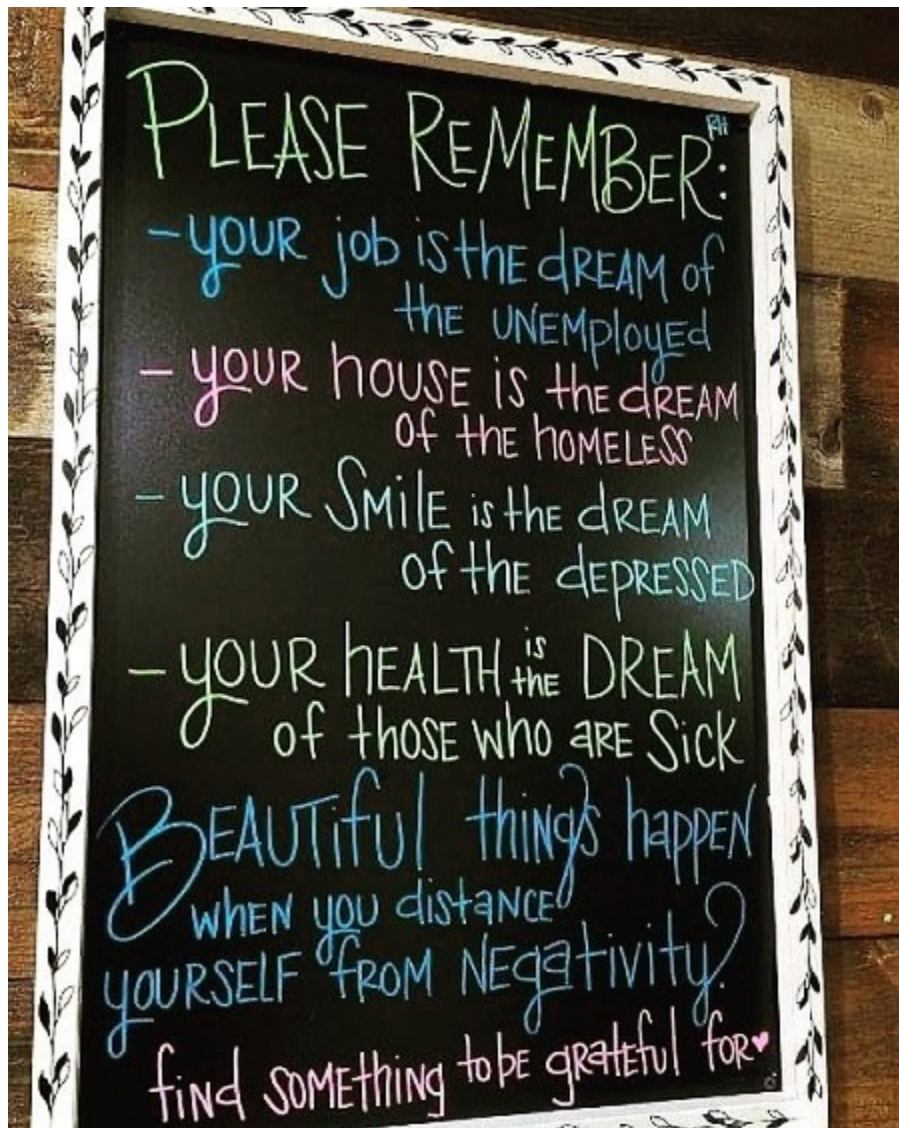 PLEASE REMEMBER:
- YOUR job is the dREAM of
the UNEMployed
- YOUR hOUSE is the dREAM
Of the hOMELESS
- YOUR SMilE is the dREAM
Of the dEPRESSED
- YOUR hEALTH is the DREAM
of thOSE who ARE Sick
BEAUTiful things happEN
whEN you distaNCE
yOURSELF fROM NEgativity.
find SOMEthing to be gratEful for♥